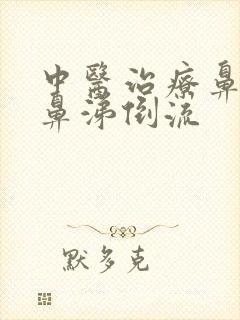 中醫治療鼻
鼻涕倒流
默多克